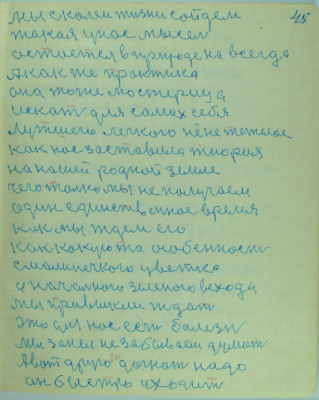 45
мы с колеи жизни сойдем
такая у нас мысел
остоется в природе на всегда
А как же практика
она тоже мостерица
искат для самих себя
лутшего легкого не не тежолое
как нас заставила тиория
на нашей родной земле
чего толко мы не получаем
один единствиное время
как мы ждем его
как какую та особенност
смаленечкого цветка
с начално зеленого вехода
мы превыкли ждат
Это для нас ест болезн
мы за нея не забываем думат
А вот друго догнат надо
он быстро уходит